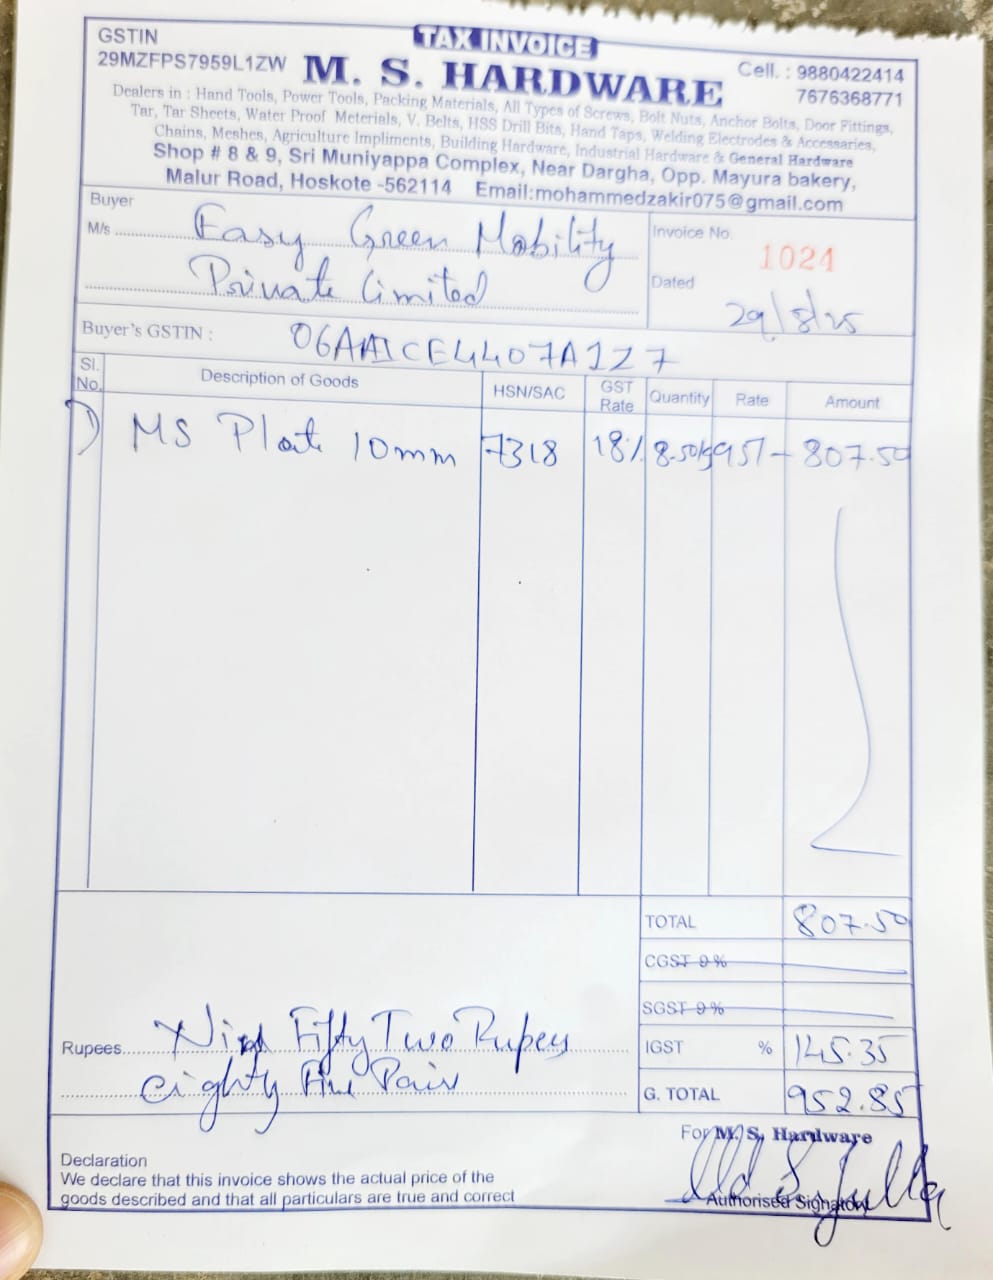 TAX INVOICE
GSTIN
29MZFPS7959L1ZW
M. S. HARDWARE
Cell. : 9880422414
7676368771
Dealers in : Hand Tools, Power Tools, Packing Materials, All Types of Screws, Bolt Nuts, Anchor Bolts, Door Fittings,
Tar, Tar Sheets, Water Proof Meterials, V. Belts, HSS Drill Bits, Hand Taps, Welding Electrodes & Accessaries,
Chains, Meshes, Agriculture Impliments, Building Hardware, Industrial Hardware & General Hardware
Shop # 8 & 9, Sri Muniyappa Complex, Near Dargha, Opp. Mayura bakery,
Malur Road, Hoskote -562114 Email:mohammedzakir075@gmail.com
Buyer
M/s Easy Green Mobility
Private Limited
Invoice No.
1024
Dated
29/8/25
Buyer's GSTIN : 06AAICE4407A1Z7
Sl. No. Description of Goods HSN/SAC GST Rate Quantity Rate Amount
1) MS Plate 10mm 7318 18% 8.50kg 95/- 807.50
TOTAL 807.50
CGST 9 %
SGST 9 %
IGST % 145.35
G. TOTAL 952.85
Rupees Fifty Two Rupees
eighty Five Paise
For M. S. Hardware
Authorised Signatory
Declaration
We declare that this invoice shows the actual price of the
goods described and that all particulars are true and correct